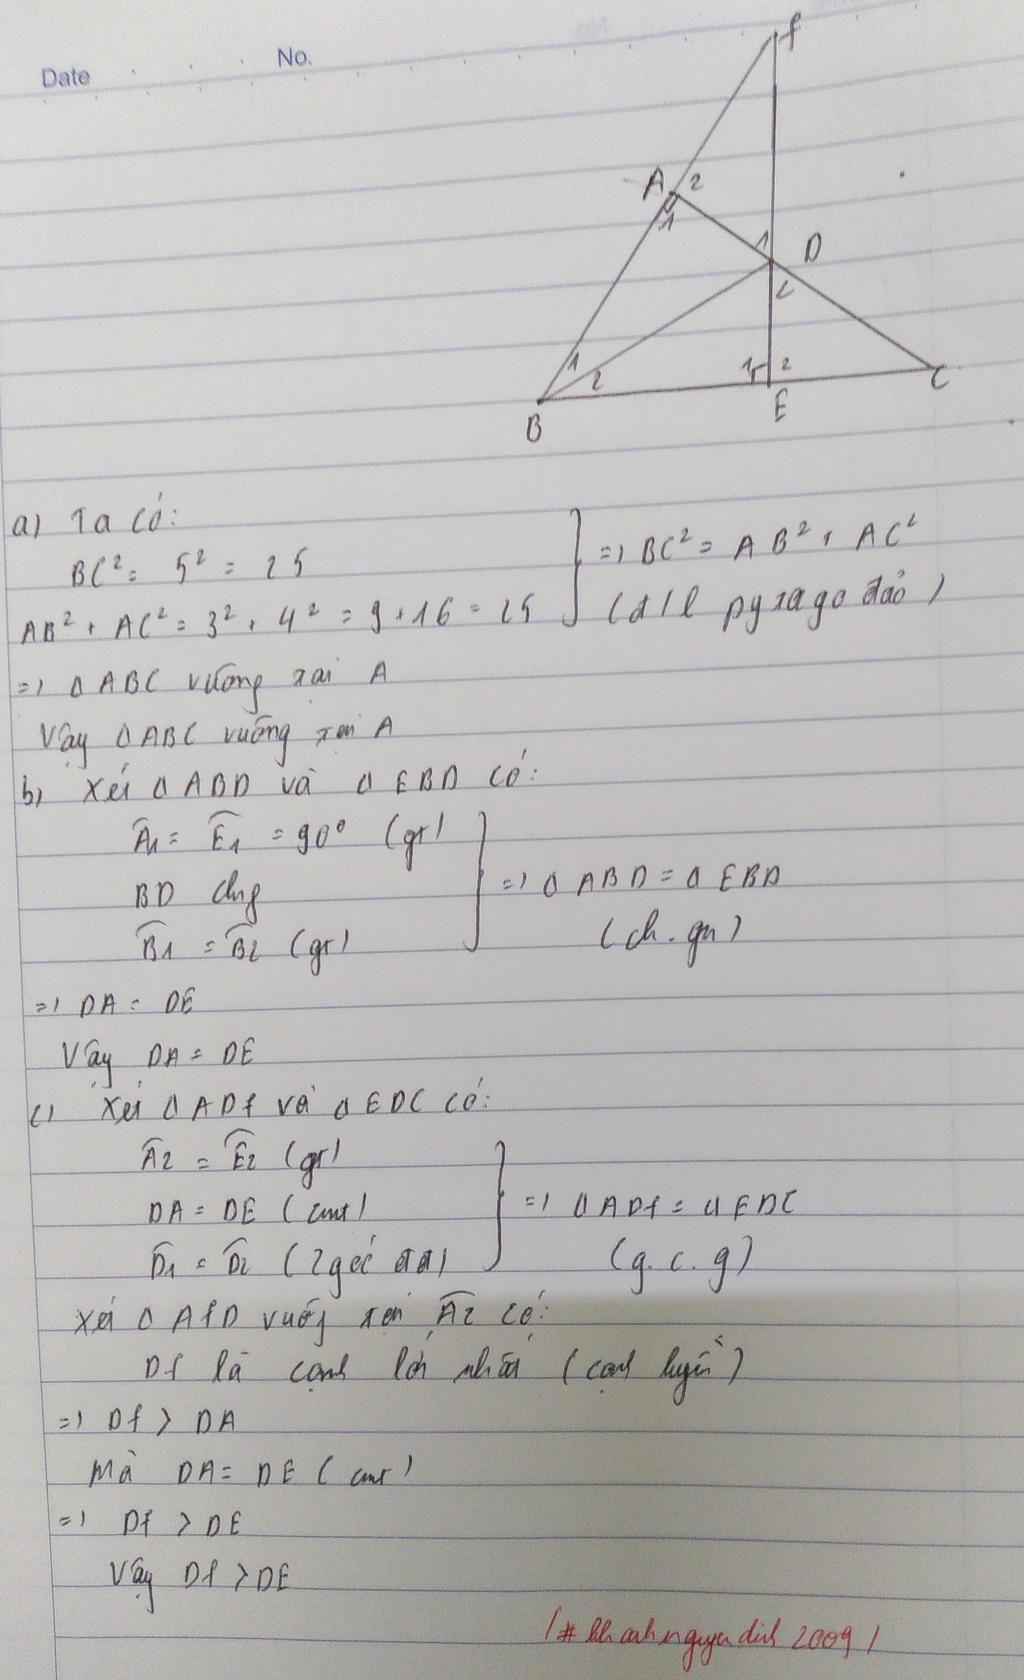 Date
No.
f
A 2
1
1 D
2
1
2
1 2
B
E
C
a) Ta có:
BC² = 5² = 25
AB² + AC² = 3² + 4² = 9 + 16 = 25
=) BC² = AB² + AC²
(đ/l pytago đảo)
=) Δ ABC vuông tại A
Vậy Δ ABC vuông tại A
b) Xét Δ ABD và Δ EBD có:
Â1 = Ê1 = 90° (gt)
BD chg
B̂1 = B̂2 (gt)
=) Δ ABD = Δ EBD
(ch.gn)
=) DA = DE
Vậy DA = DE
c) Xét Δ ADf và Δ EDC có:
Â2 = Ê2 (gt)
DA = DE (cmt)
D̂1 = D̂2 (2 góc đđ)
=) Δ ADf = Δ EDC
(g.c.g)
Xét Δ AfD vuông tại Â2 có:
Df là cạnh lớn nhất (cạnh huyền)
=) Df > DA
Mà DA = DE (cmt)
=) Df > DE
Vậy Df > DE
(# khanhnguyendinh 2009)